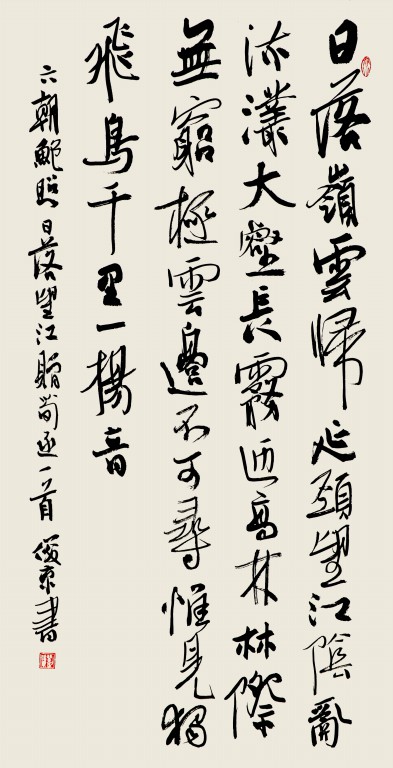 日落嶺雲歸延頸望江陰亂
流灇大壑長霧迊高林林際
無窮極雲邊不可尋惟見獨
飛鳥千里一楊音
六朝鮑照日落望江贈荀丞一首 俊京書